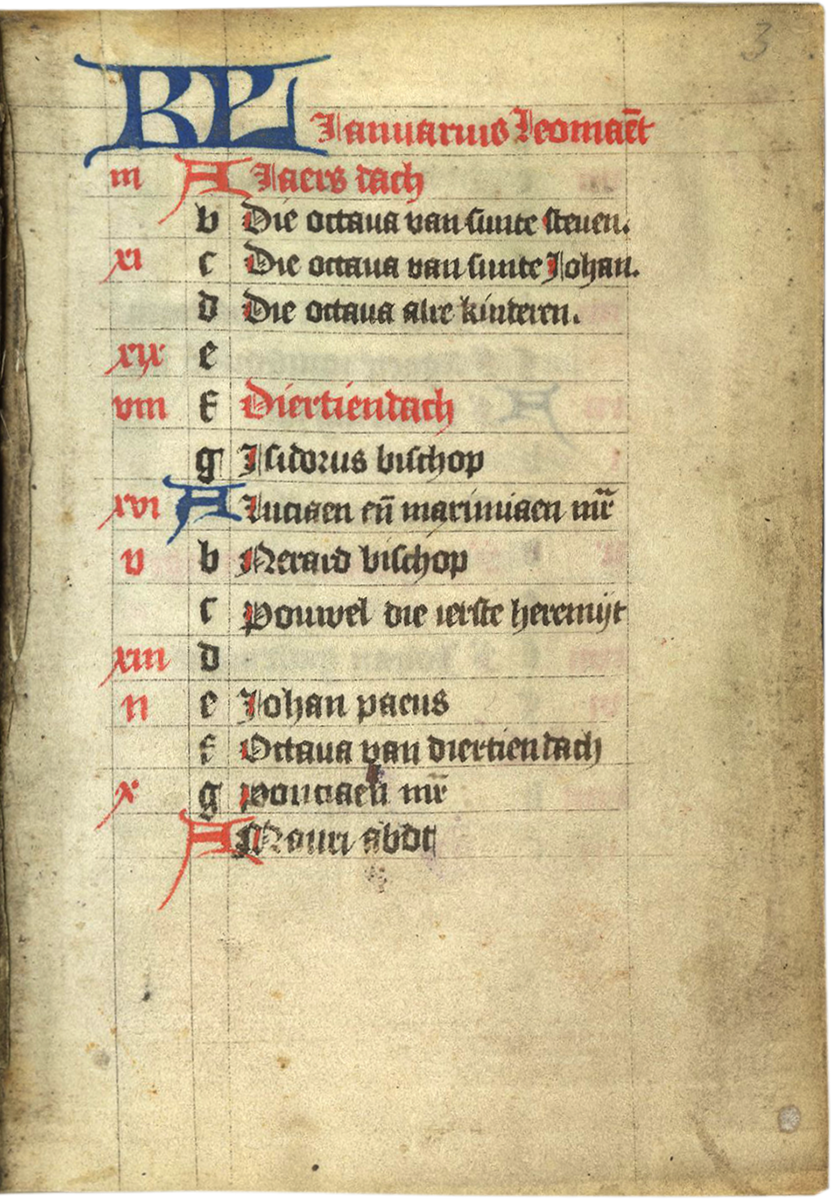 3
KL Ianuarius Leomaēt
iii A Iaers dach
b Die octaua van sunte steuen.
xi c Die octaua van sunte Johan.
d Die octaua alre kinderen.
xix e
viii f Diertiendach
g Isidorus bisschop
xvi A Luciaen eñ maximiaen mr̄
v b Nerard bisschop
c Pouwel die ierste heremijt
xiii d
ii e Johan paeus
f Octaua van diertiendach
x g Ponciaen mr̄
A Mauri abdt